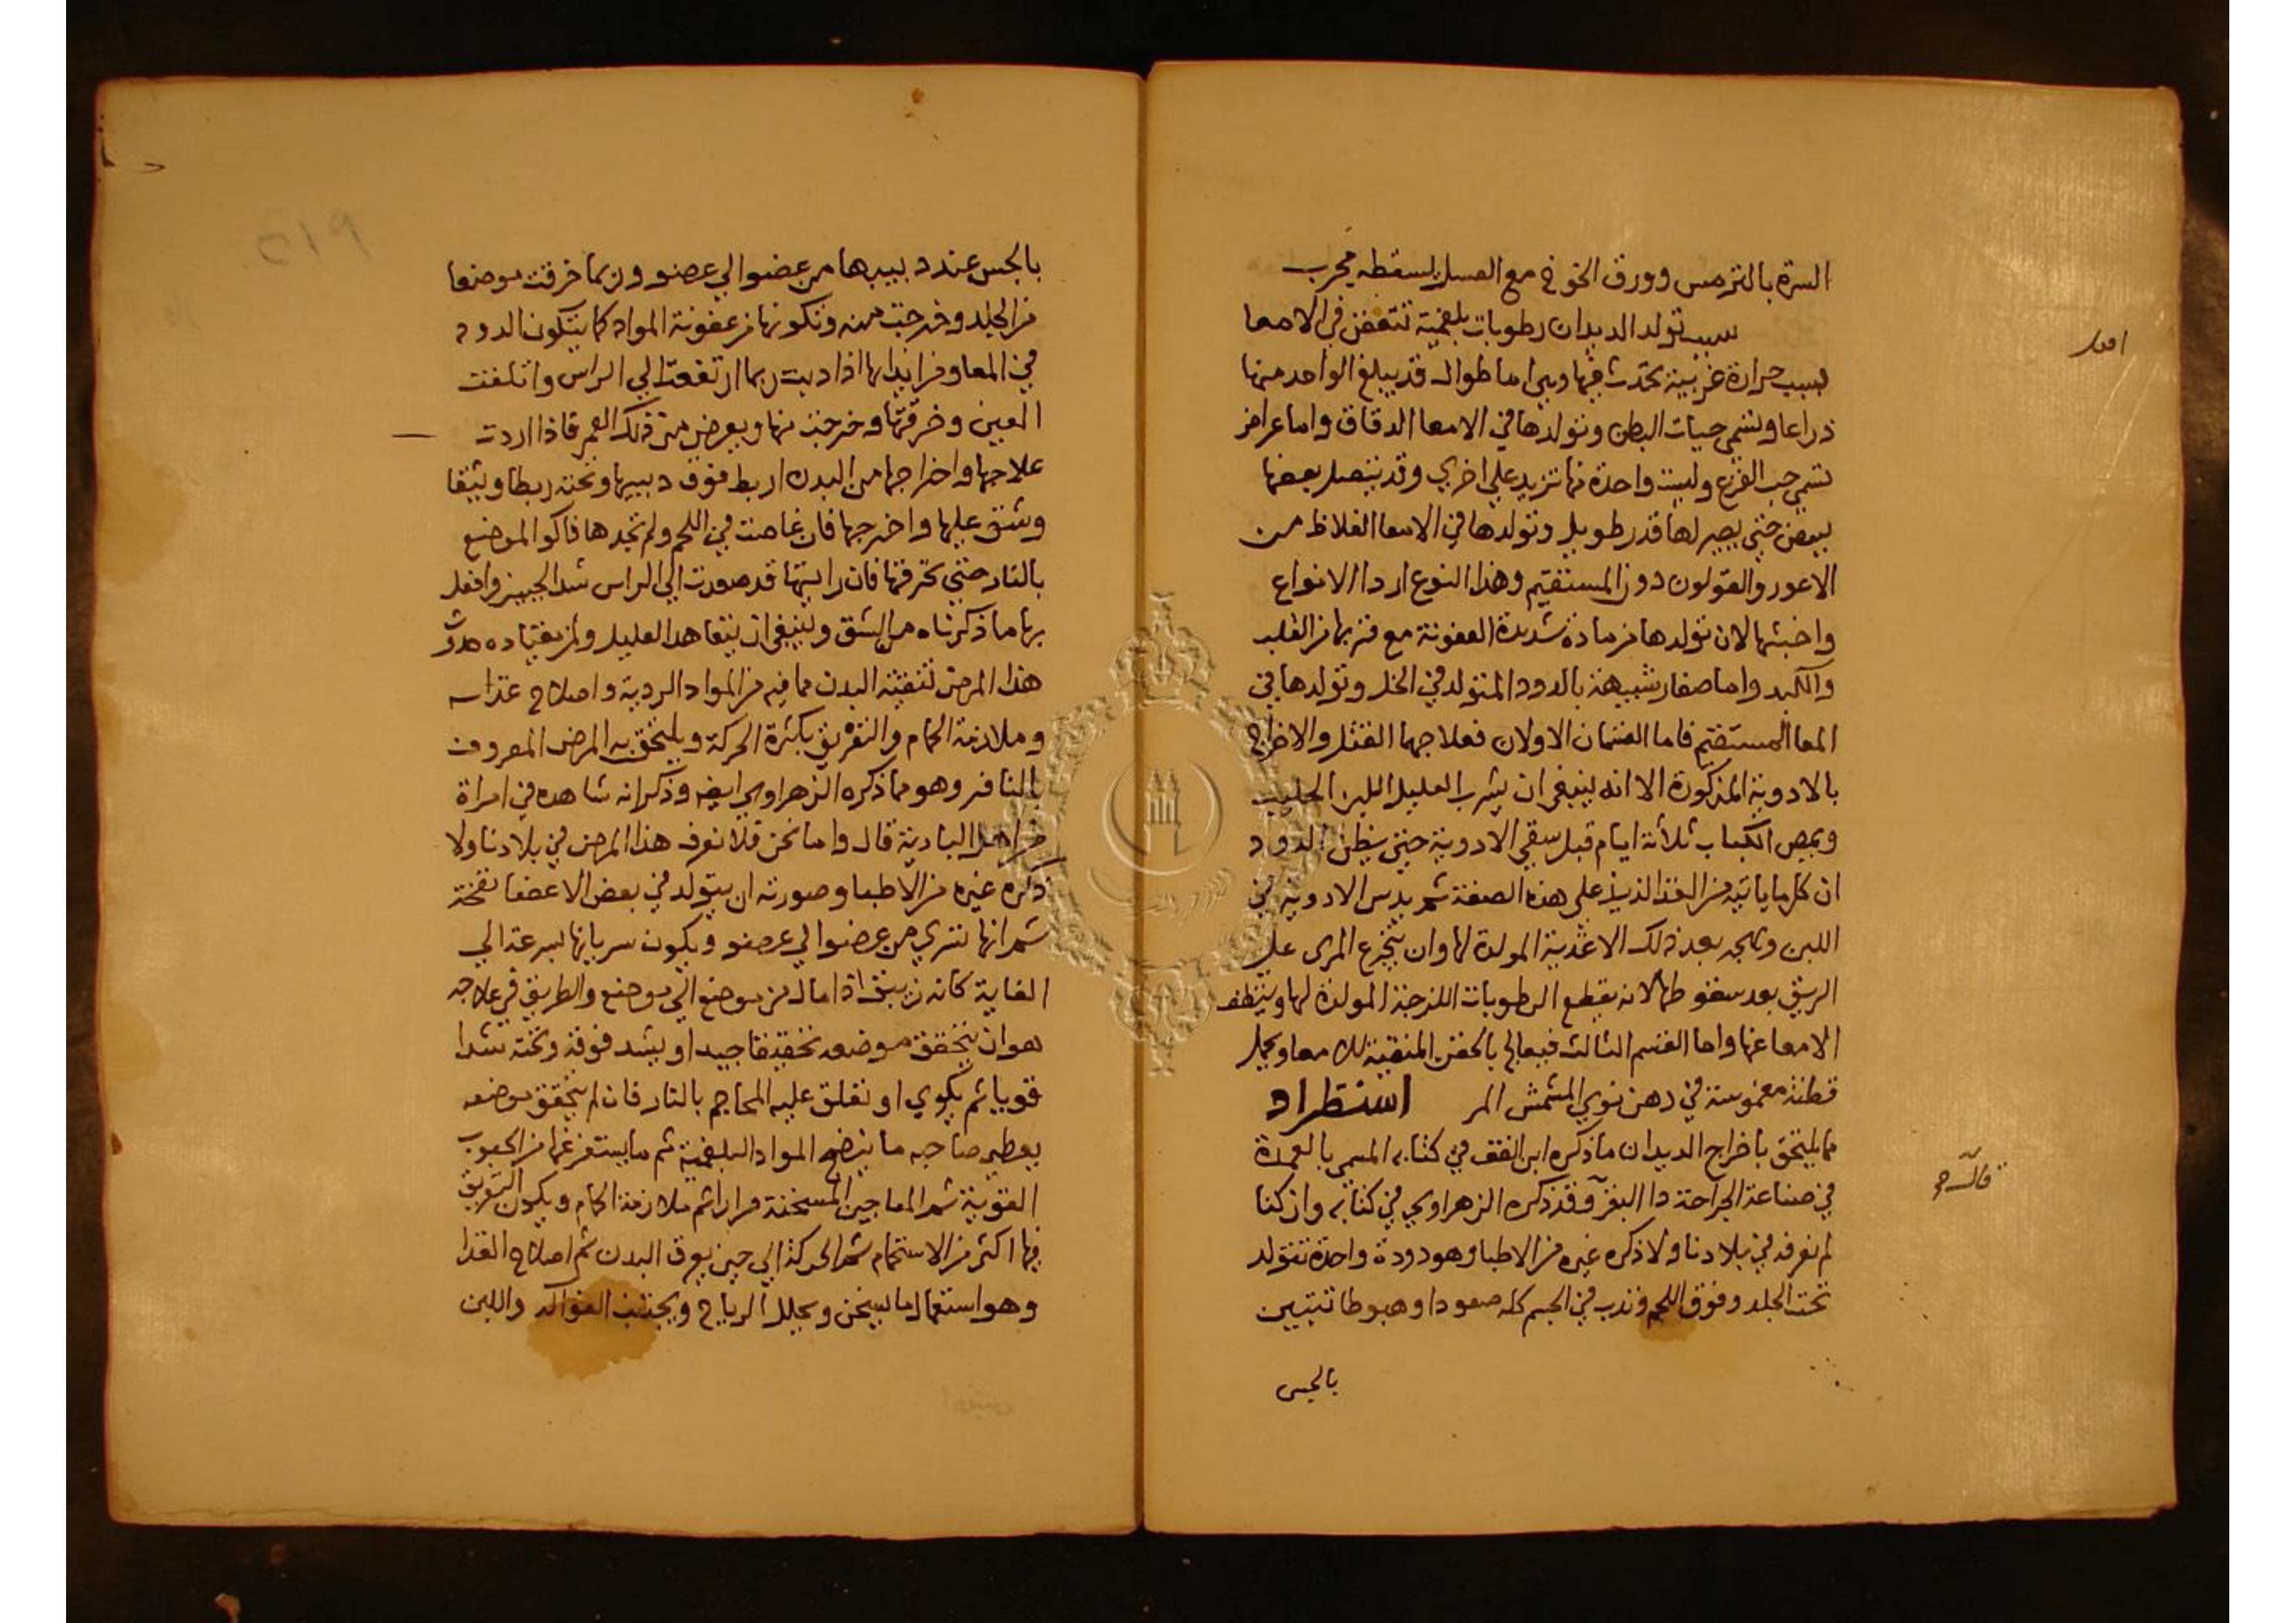 السرة بالترمس وورق الخوخ مع العسل يسقطه مجرب
سبب تولد الديدان رطوبات بلغمية تتعفن في الامعا
اقول
بسبب حرارة غريبة تحدث فيها وهي اما طوال قد يبلغ الواحد منها
ذراعا وتسمي حيات البطن وتولدها في الامعا الدقاق واما عراض
تسمي حب القرع وليست واحدة منها تزيد علي اخري وقد يتصل بعضها
ببعض حتي يصير لها قدر طويل وتولدها في الامعا الغلاظ من
الاعور والقولون دون المستقيم وهذا النوع اردا الانواع
واخبثها لان تولدها من مادة شديدة العفونة مع قربها من القلب
والكبد واما صغار شبيهة بالدود المتولد في الخل وتولدها في
المعا المستقيم فاما القسمان الاولان فعلاجهما القتل والاخراج
بالادوية المذكورة الا انه ينبغي ان يشرب العليل اللبن الحليب
ويمص الكباب ثلاثة ايام قبل سقي الادوية حتي يظن الدود
ان كل ما ياتيه من الغذا لذيذ علي هذه الصفة ثم يدس الادوية في
اللبن ويهجر بعد ذلك الاغذية المولدة لها وان يتجرع المري علي
الريق بعد سقوطها لانه يقطع الرطوبات اللزجة المولدة لها وينظف
الامعا عنها واما القسم الثالث فيعالج بالحقن المنقية للامعا ويحمل
قطنة مغموسة في دهن نوي المشمش المر استطراد
مما يلتحق باخراج الديدان ما ذكره ابن القف في كتابه المسمي بالعمدة
في صناعة الجراحة دا البقر وقد ذكره الزهراوي في كتابه وان كنا
لم نعرفه في بلادنا ولا ذكره غيره من الاطبا وهو دودة واحدة تتولد
تحت الجلد وفوق اللحم وتدب في الجسم كله صعودا وهبوطا تتبين
بالحس
بالحس عند دبيبها من عضو الي عضو وربما خرقت موضعا
من الجلد وخرجت منه وتكونها من عفونة المواد كما يتكون الدود
في المعا ومن ايذايها اذا دبت ربما ارتفعت الي الراس واتلفت
العين وخرقتها وخرجت منها ويعرض من ذلك العمي فاذا اردت
علاجها واخراجها من البدن اربط فوق دبيبها وتحته ربطا وثيقا
وشق عليها واخرجها فان غاصت في اللحم ولم تجدها فاكو الموضع
بالنار حتي تحرقها فان رايتها قد صعدت الي الراس شد الجبين وافعل
بها ما ذكرناه من الشق وينبغي ان يتعاهد العليل ولمن يعتاده حدوث
هذا المرض تنقية البدن مما فيه من المواد الردية واصلاح غذاه
وملازمة الحمام والتعريق بكثرة الحركة ويلتحق به المرض المعروف
بالنافر وهو مما ذكره الزهراوي ايضا وذكر انه شاهده في امراة
من اهل البادية قال واما نحن فلا نعرف هذا المرض في بلادنا ولا
ذكره غيره من الاطبا وصورته ان يتولد في بعض الاعضا نفخة
ثم انها تسري من عضو الي عضو ويكون سريانها بسرعة الي
الغاية كانه زيبق اذا مال من موضع الي موضع والطريق في علاجه
هو ان يتحقق موضعه تحقيقا جيدا ويشد فوقه وتحته شدا
قويا ثم يكوي او تعلق عليه المحاجم بالنار فان لم يتحقق موضعه
يعطي صاحبه ما ينضج المواد البلغمية ثم ما يستفرغها من الحبوب
القوية ثم المعاجين المسخنة مرارا ثم ملازمة الحمام ويكون التعريق
فيها اكثر من الاستحمام ثم الحركة الي حين يعرق البدن ثم اصلاح الغذا
وهو استعمال ما يسخن ويحلل الرياح ويجتنب الفواكه واللبن